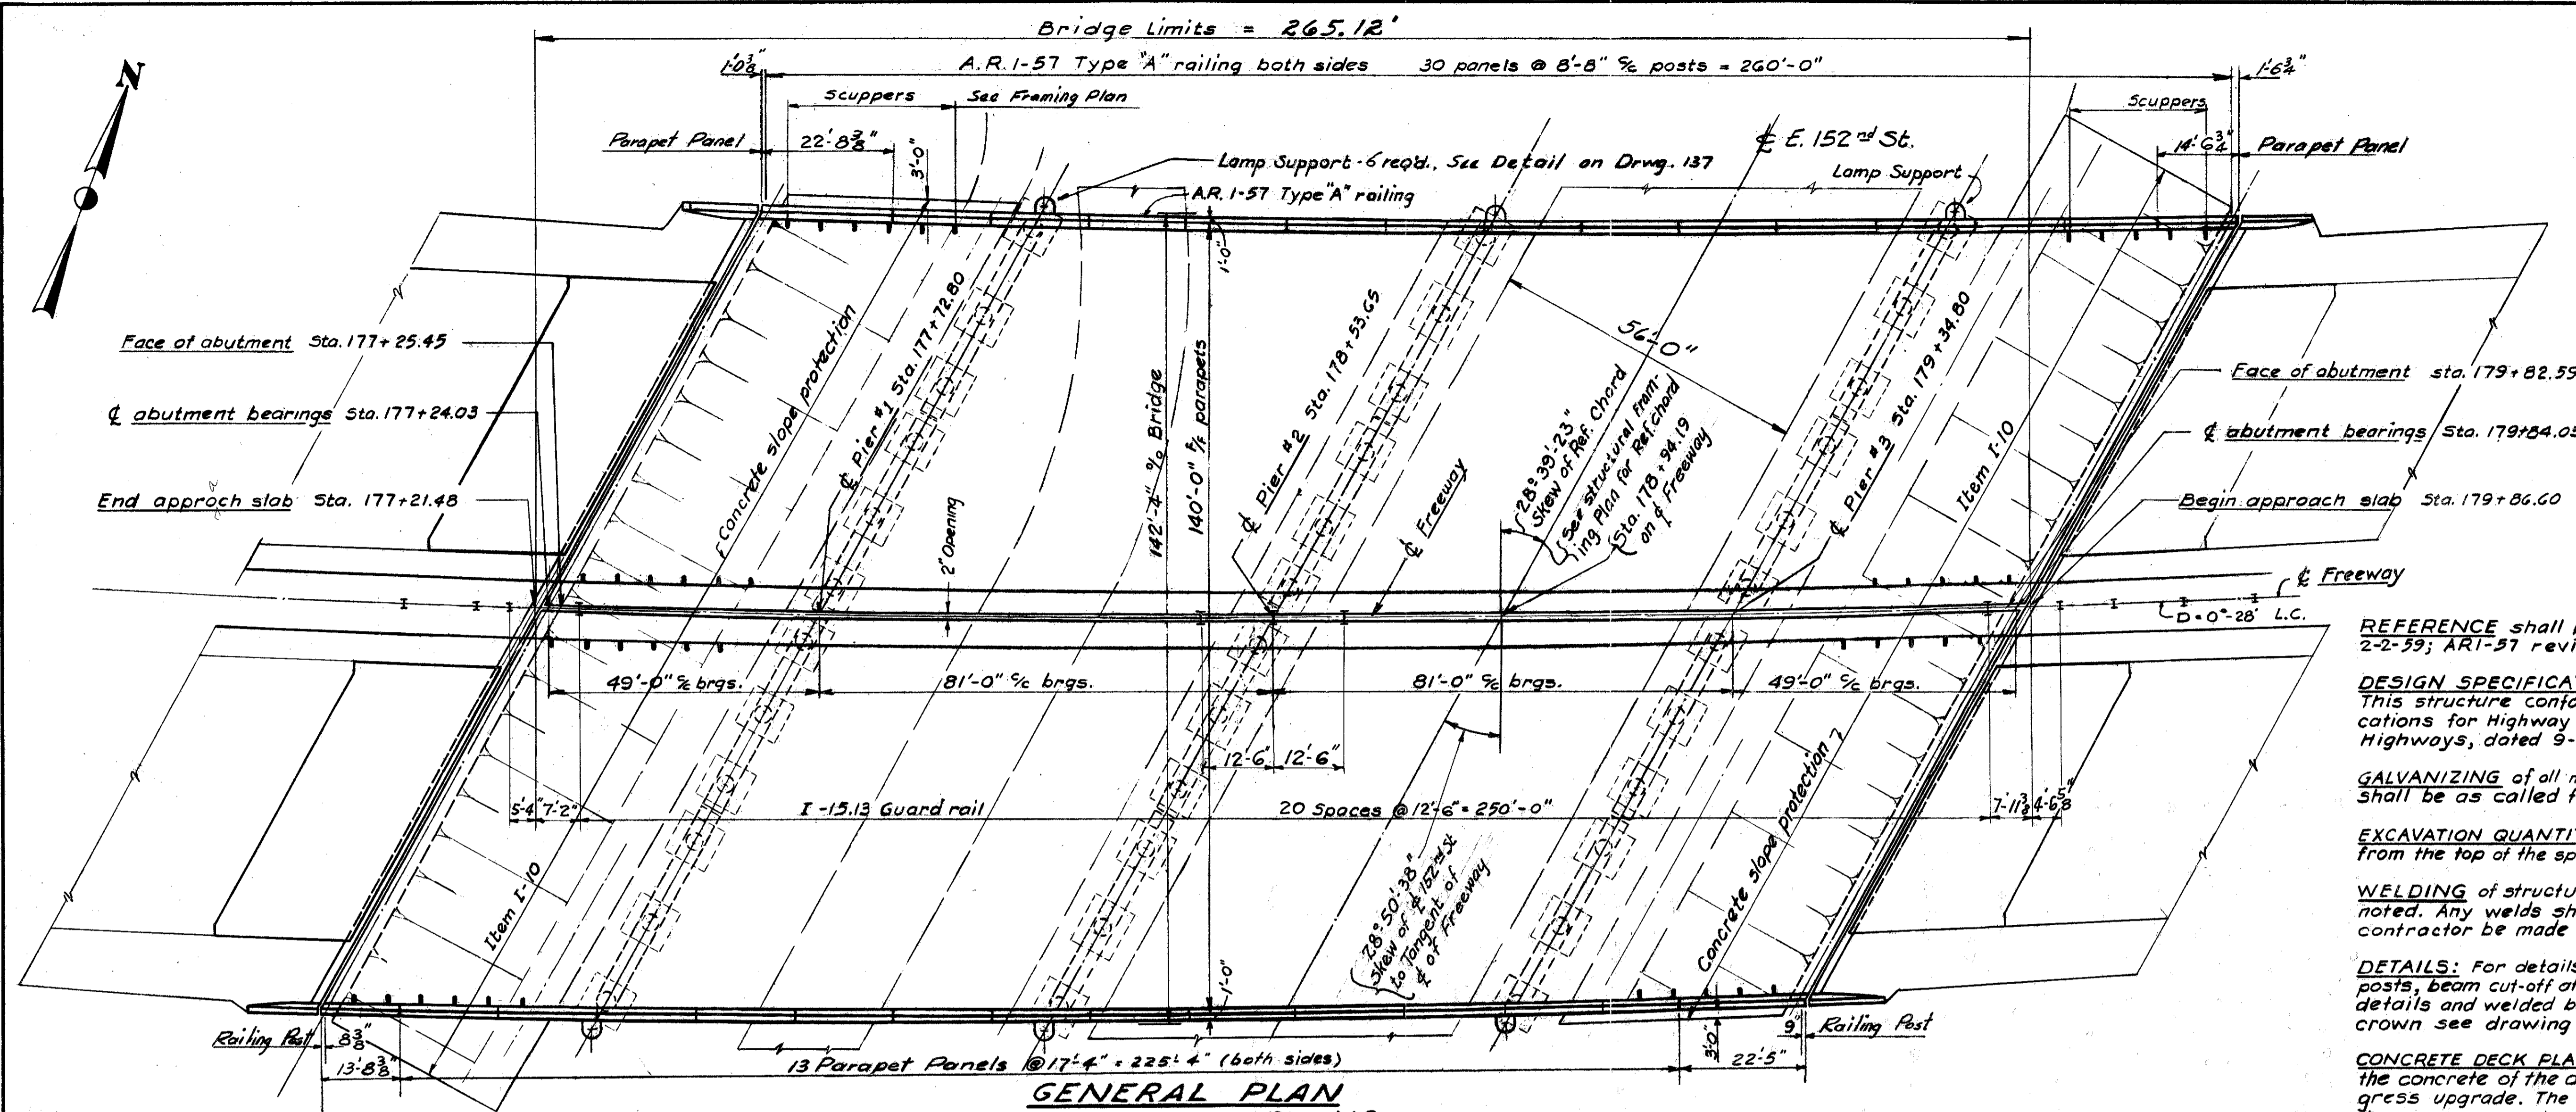 Bridge Limits = 265.12'
1'-0 3/8"
A.R. 1-57 Type "A" railing both sides 30 panels @ 8'-8" c/c posts = 260'-0"
1'-6 3/4"
N
Scuppers
See Framing Plan
Scuppers
Parapet Panel
22'-8 3/8"
3'-0"
Lamp Support - 6 req'd., See Detail on Drwg. 137
A.R. 1-57 Type "A" railing
℄ E. 152nd St.
Lamp Support
14'-6 3/4"
Parapet Panel
1'-0"
Face of abutment Sta. 177+25.45
℄ abutment bearings Sta. 177+24.03
End approch slab Sta. 177+21.48
a
Concrete slope protection
℄ Pier #1 Sta. 177+72.80
2" Opening
142'-4" o/o Bridge
140'-0" f/f parapets
℄ Pier #2 Sta. 178+53.65
℄ Freeway
56'-0"
28°-39'-23"
Skew of Ref. Chord
See structural Fram-
ing Plan for Ref. chord
Sta. 178+94.19
on ℄ Freeway
℄ Pier #3 Sta. 179+34.80
Item I-10
Face of abutment sta. 179+82.59
℄ abutment bearings Sta. 179+84.05
Begin approach slab Sta. 179+86.60
℄ Freeway
D=0°-28' L.C.
49'-0" c/c brgs.
81'-0" c/c brgs.
81'-0" c/c brgs.
49'-0" c/c brgs.
12'-6"
12'-6"
5'-4"
7'-2"
I-15.13 Guard rail
20 Spaces @ 12'-6" = 250'-0"
7'-11 3/8"
4'-6 5/8"
Item I-10
28°-50'-38"
Skew of ℄ 152nd St
to Tangent of
℄ of Freeway
Concrete slope protection
1'-0"
Railing Post
8 3/8"
13'-8 3/8"
13 Parapet Panels @ 17'-4" = 225'-4" (both sides)
3'-0"
22'-5"
9"
Railing Post
GENERAL PLAN
REFERENCE shall
2-2-59; AR1-57 revi
DESIGN SPECIFICA
This structure confo
cations for Highway
Highways, dated 9-
GALVANIZING of all m
shall be as called f
EXCAVATION QUANTIT
from the top of the sp
WELDING of structu
noted. Any welds sh
contractor be made
DETAILS: For details
posts, beam cut-off at
details and welded b
crown see drawing
CONCRETE DECK PLA
the concrete of the d
gress upgrade. The